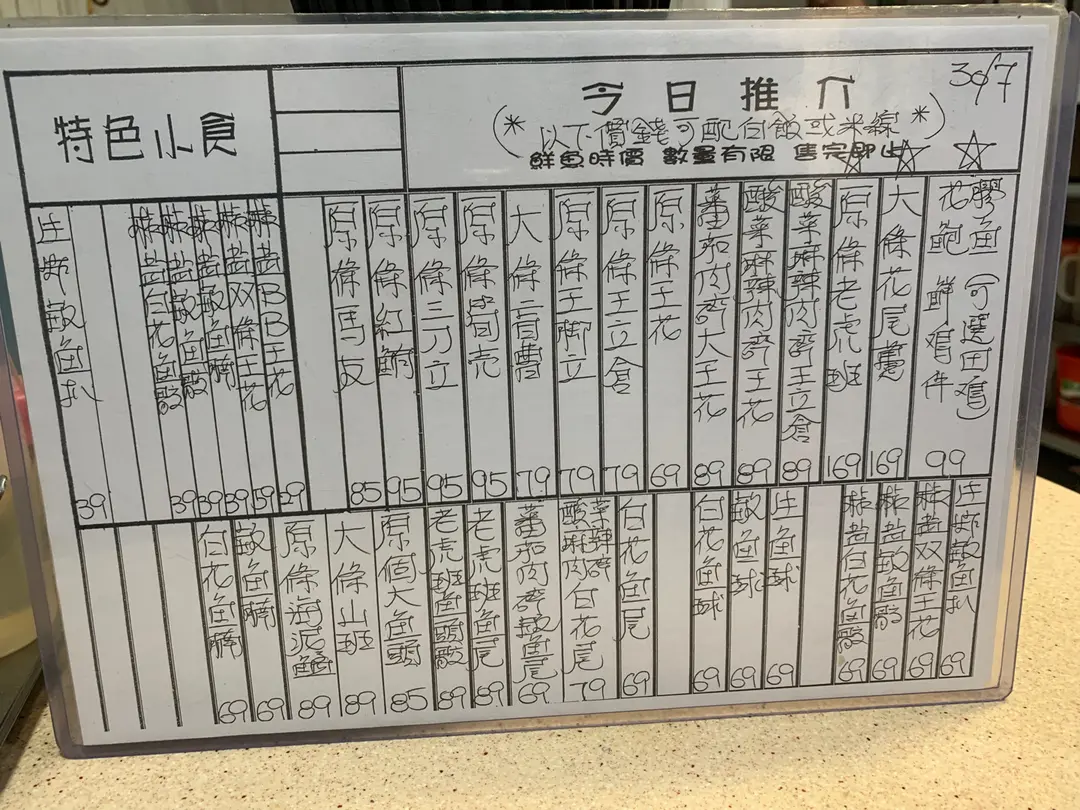 特色小食
今日推介 30/7
(*以下價錢可配白飯或米線*)
鮮魚時價 數量有限 售完即止
☆☆☆
膠魚(可選田雞)
花鮑 鮮雞件 99
大條花尾躉 169
原條老虎班 169
酸菜麻辣肉碎王立倉 89
酸菜麻辣肉碎王花 89
蕃茄肉碎大王花 89
原條王花 69
原條王立倉 79
原條王腳立 79
大條二百曹 79
原條筍壳 95
原條三刀立 95
原條紅鮋 95
原條馬友 85
椒盐BB王花
椒盐双條王花 59
椒盐敏魚腩 39
椒盐敏魚骹 39
椒盐白花魚骹 39
敏魚扒 39
敏魚扒 69
椒盐双條王花 69
椒盐敏魚骹 69
椒盐白花魚骹 69
庄魚球 69
敏魚球 69
白花魚球 69
白花魚尾 69
酸菜麻辣肉碎白花尾 79
蕃茄肉碎敏魚尾 69
老虎班魚尾 89
老虎班魚頭骹 89
原個大魚頭 85
大條山班 89
原條海泥鯭 89
敏魚腩 69
白花魚腩 69